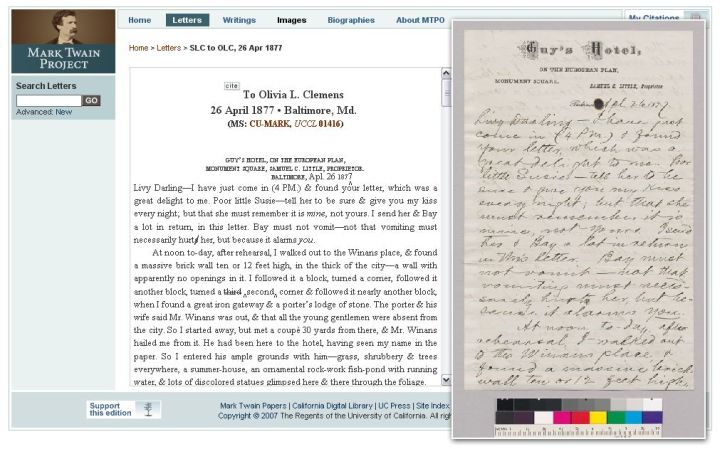 Home Letters Writings Images Biographies About MTPO My Citations
MARK TWAIN
PROJECT
Home > Letters > SLC to OLC, 26 Apr 1877
Search Letters
GO
Advanced: New
cite
To Olivia L. Clemens
26 April 1877 • Baltimore, Md.
(MS: CU-MARK, UCCL 01416)
GUY'S HOTEL, ON THE EUROPEAN PLAN,
MONUMENT SQUARE, SAMUEL C. LITTLE, PROPRIETOR.
BALTIMORE, Apl. 26 1877
Livy Darling—I have just come in (4 PM.) & found your letter, which was a
great delight to me. Poor little Susie—tell her to be sure & give you my kiss
every night; but that she must remember it is mine, not yours. I send her & Bay
a lot in return, in this letter. Bay must not vomit—not that vomiting must
necessarily hurt her, but because it alarms you.
At noon to-day, after rehearsal, I walked out to the Winans place, & found
a massive brick wall ten or 12 feet high, in the thick of the city—a wall with
apparently no openings in it. I followed it a block, turned a corner, followed it
another block, turned a third second corner & followed it nearly another block,
when I found a great iron gateway & a porter's lodge of stone. The porter & his
wife said Mr. Winans was out, & that all the young gentlemen were absent from
the city. So I started away, but met a coupé 30 yards from there, & Mr. Winans
hailed me from it. He had been here to the hotel, having seen my name in the
paper. So I entered his ample grounds with him—grass, shrubbery & trees
everywhere, a summer-house, an ornamental rock-work fish-pond with running
water, & lots of discolored statues glimpsed here & there through the foliage.
Support
this edition
Mark Twain Papers | California Digital Library | UC Press | Site Index
Copyright © 2007 The Regents of the University of California. All righ
Guy's Hotel,
ON THE EUROPEAN PLAN,
MONUMENT SQUARE.
SAMUEL C. LITTLE, Proprietor
Apl. 26 1877
Livy Darling—I have just
come in (4 PM.) & found
your letter, which was a
great delight to me. Poor
little Susie—tell her to be
sure & give you my kiss
every night; but that she
must remember it is
mine, not yours. I send
her & Bay a lot in return
in this letter. Bay must
not vomit—not that
vomiting must neces-
sarily hurt her, but be-
cause it alarms you.
At noon to-day, after
rehearsal, I walked out
to the Winans place &
found a massive brick
wall ten or 12 feet high,